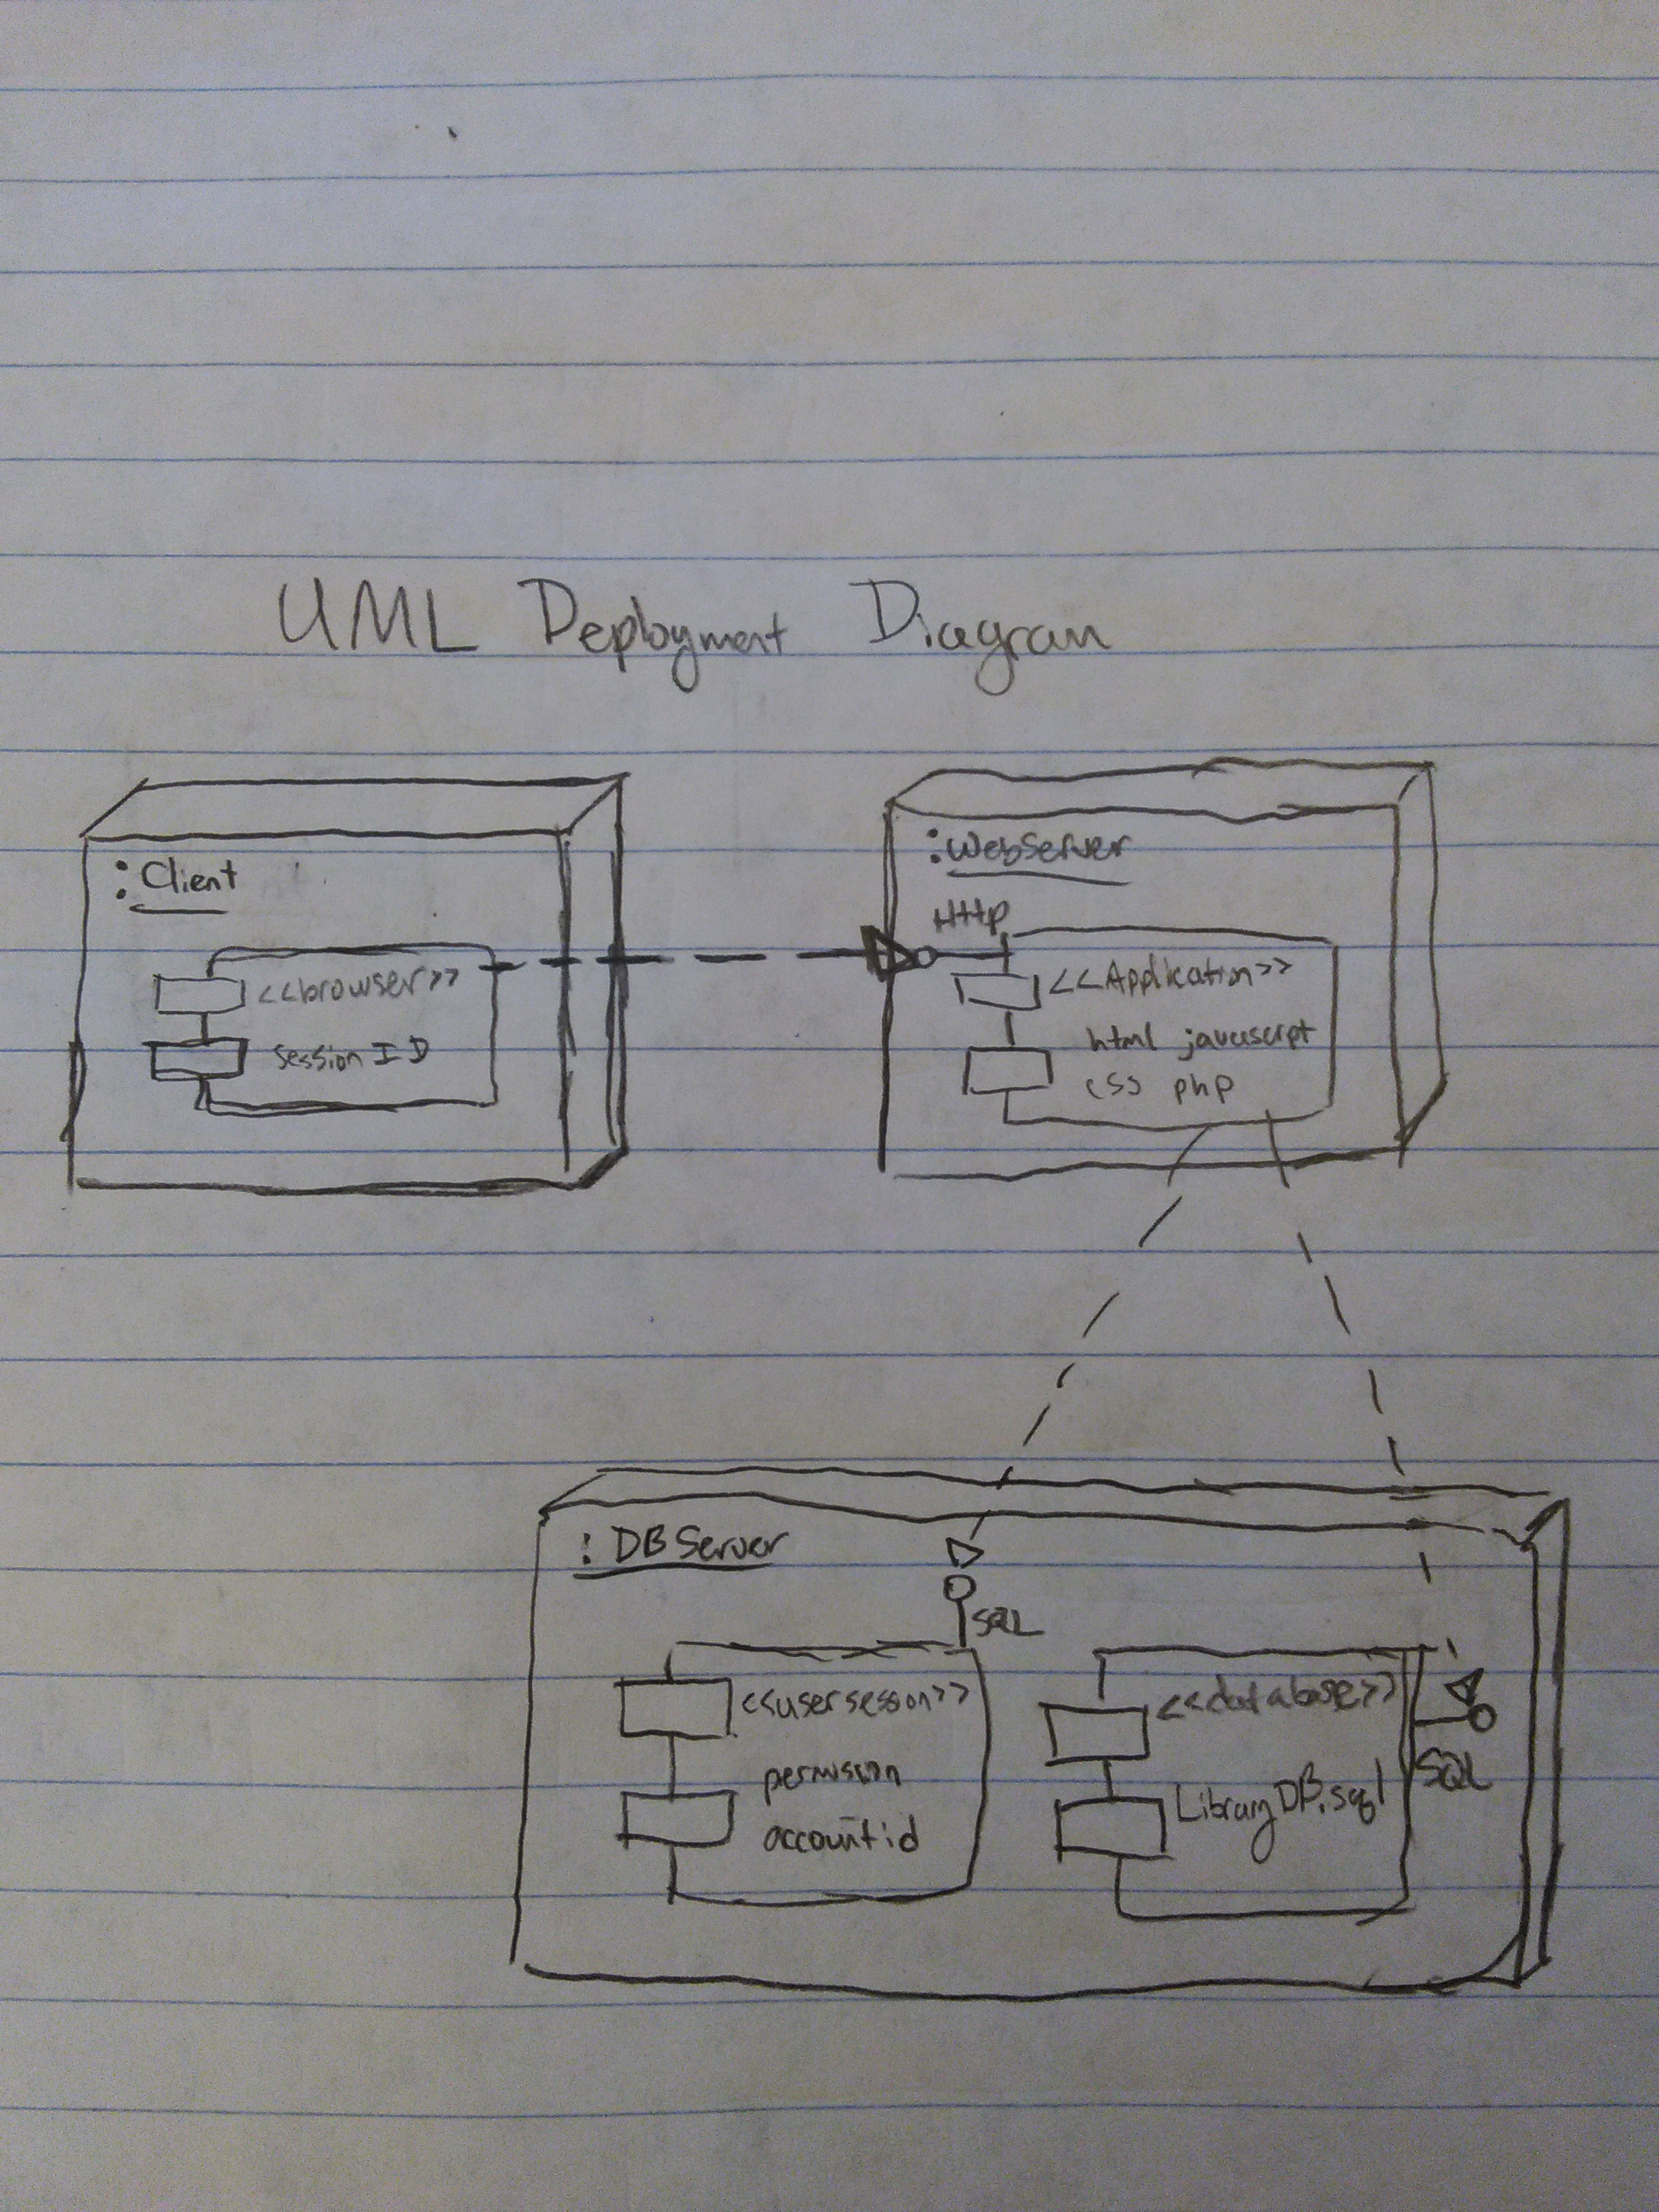 UML Deployment Diagram
:Client
<<browser>>
session ID
:WebServer
Http
<<Application>>
html javascript
css php
:DB Server
SQL
<<usersession>>
permission
accountid
<<database>>
LibraryDB.sql
SQL